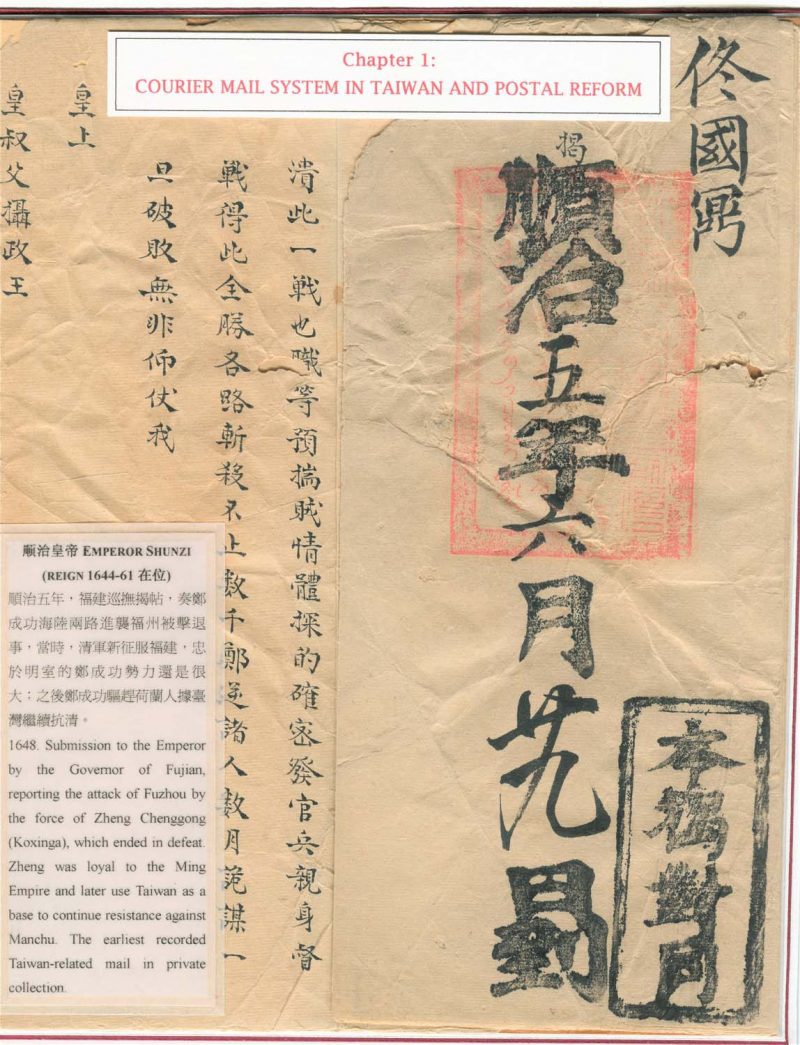 Chapter 1:
COURIER MAIL SYSTEM IN TAIWAN AND POSTAL REFORM
佟國鼐
揭
順治五年六月廿九日
本揭對同
潰此一戦也職等預揣賊情體探的確密發官兵親身督
戦得此全勝各路斬殺不止数千鄭逆諸人数月詭謀一
旦破敗無非仰仗我
皇上
皇叔父攝政王
順治皇帝 EMPEROR SHUNZI
(REIGN 1644-61 在位)
順治五年，福建巡撫揭帖，奏鄭
成功海陸兩路進襲福州被擊退
事，當時，清軍新征服福建，忠
於明室的鄭成功勢力還是很
大；之後鄭成功驅趕荷蘭人據臺
灣繼續抗清。
1648. Submission to the Emperor
by the Governor of Fujian,
reporting the attack of Fuzhou by
the force of Zheng Chenggong
(Koxinga), which ended in defeat.
Zheng was loyal to the Ming
Empire and later use Taiwan as a
base to continue resistance against
Manchu. The earliest recorded
Taiwan-related mail in private
collection.